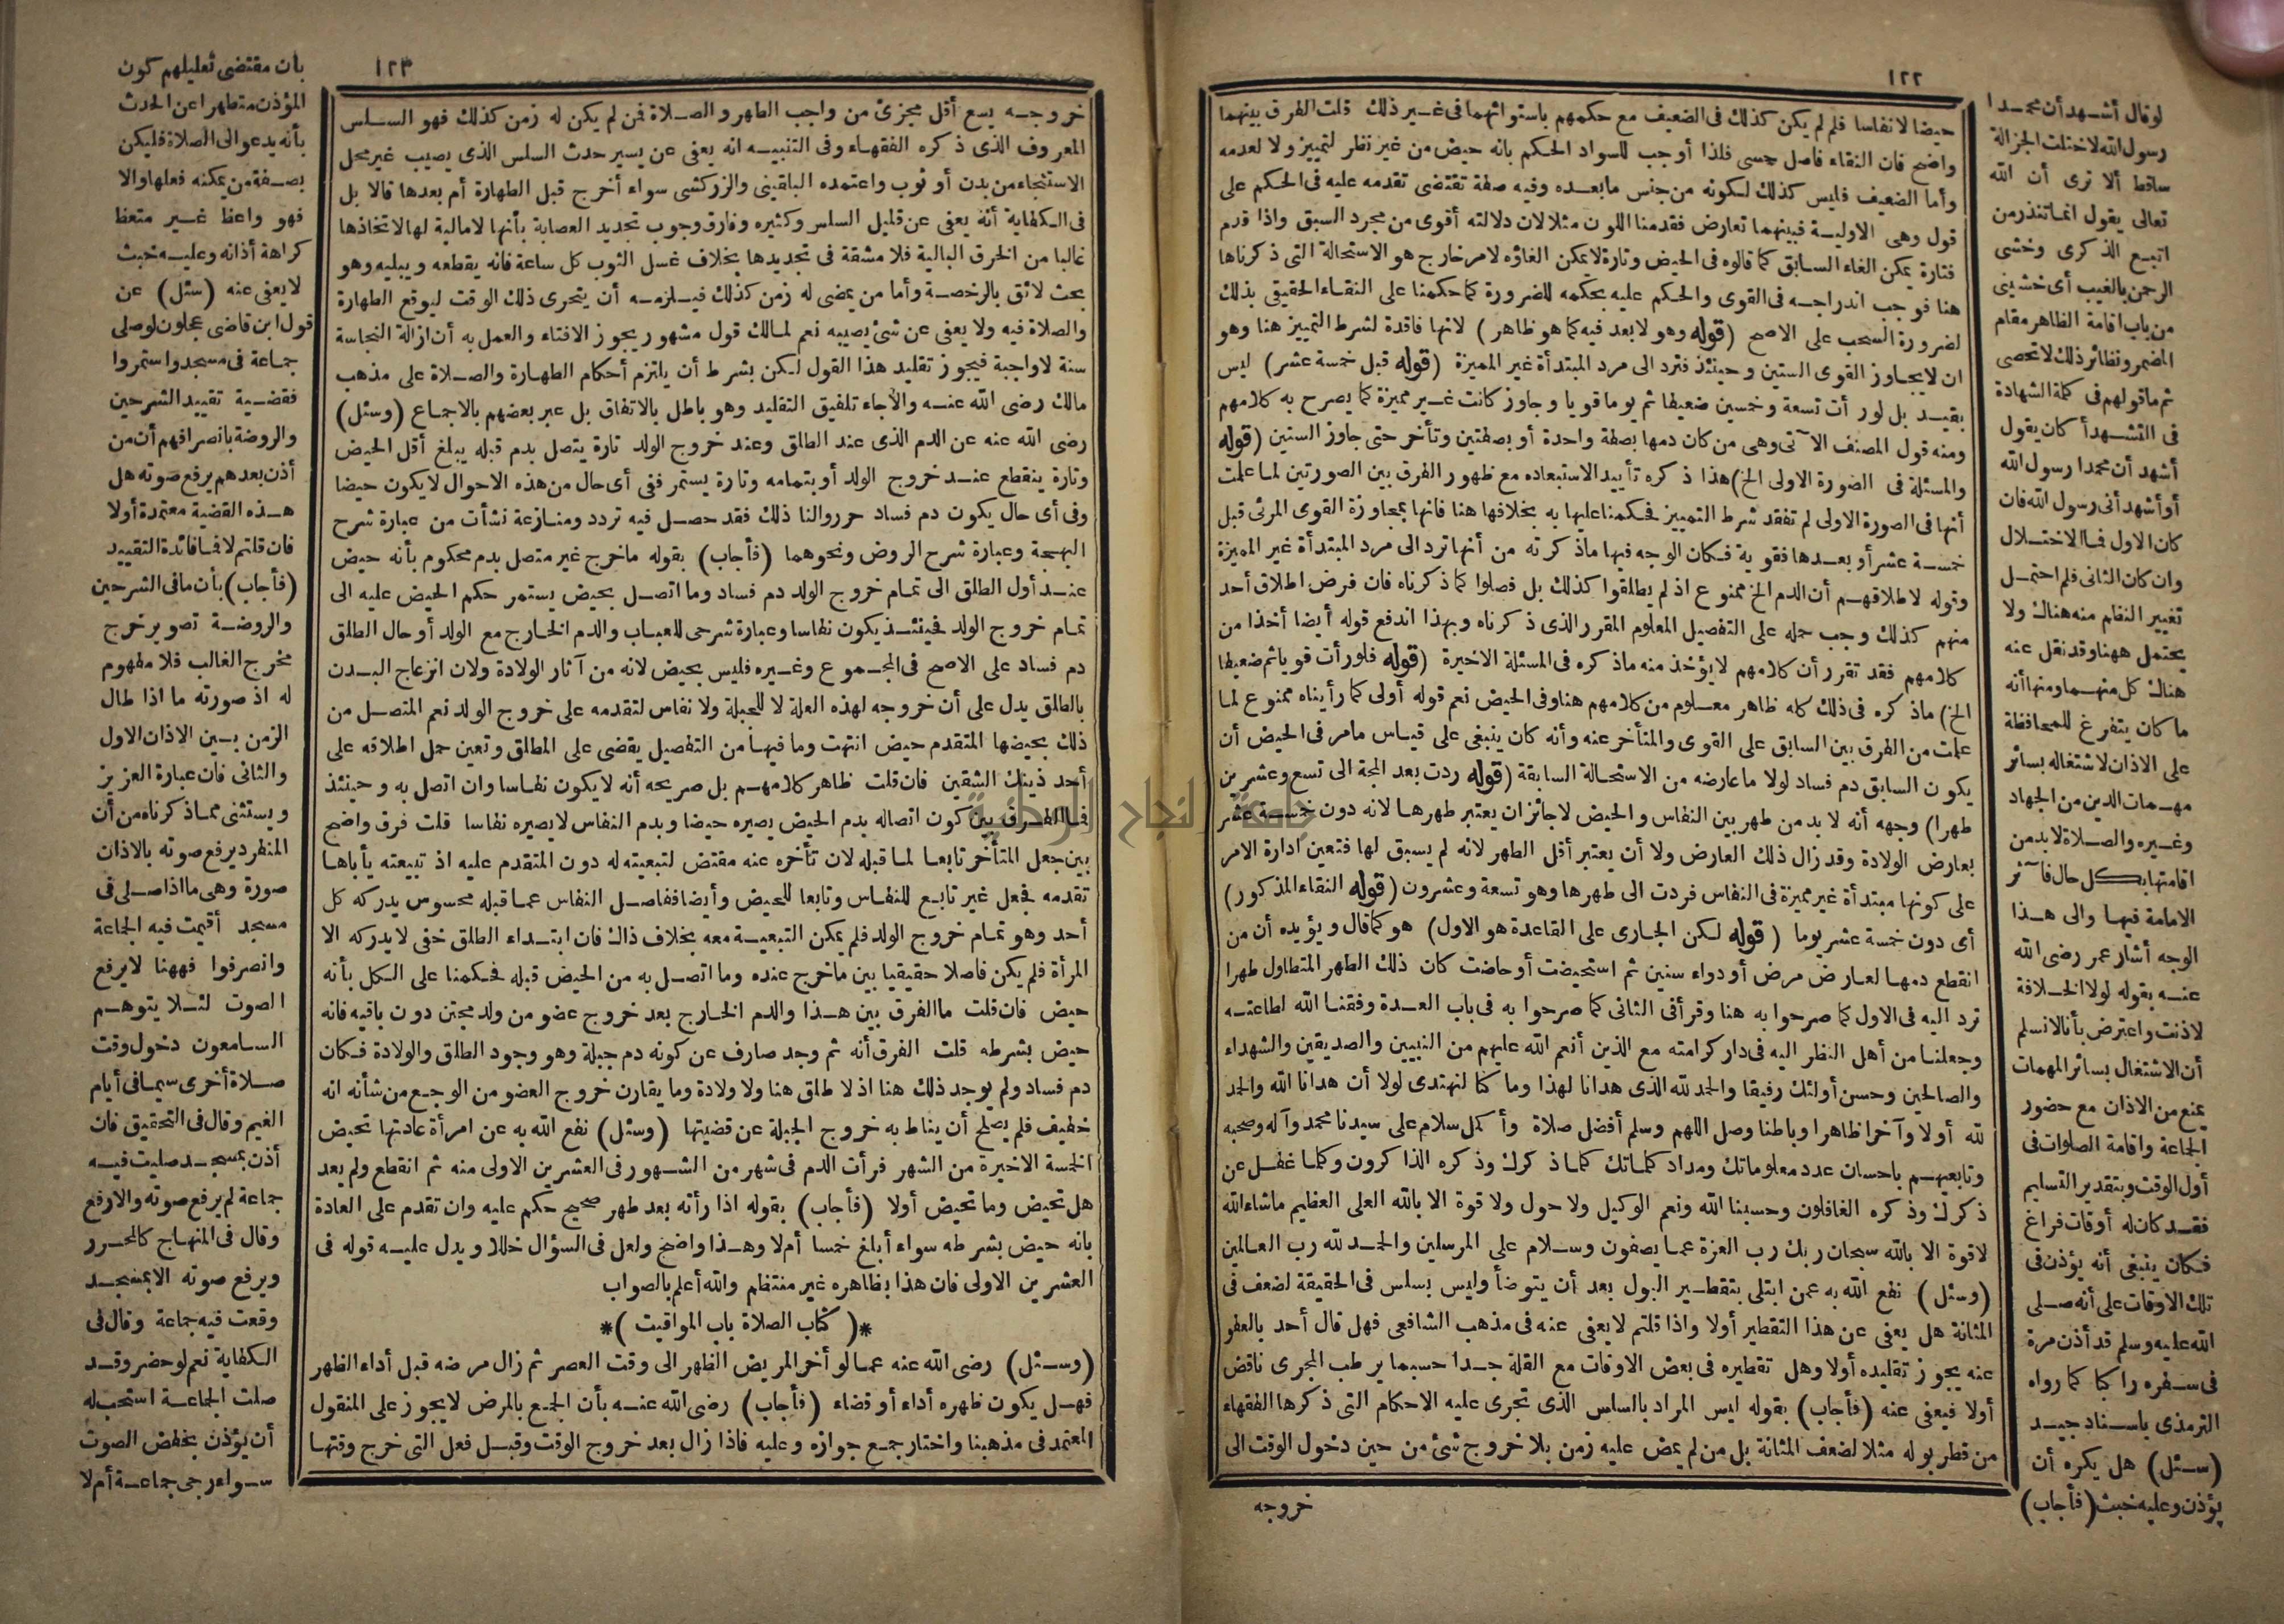 ١٢٢
حيضا لا نفاسا فلم لم يكن كذلك فى الضعيف مع حكمهم باستوائهما فى غير ذلك قلت الفرق بينهما
واضح فان النقاء فاصل حسى فلذا أوجب للسواد الحكم بانه حيض من غير نظر لتمييز ولا لعدمه
وأما الضعيف فليس كذلك لكونه من جنس ما بعده وفيه صفة تقتضى تقدمه عليه فى الحكم على
قول وهى الاولية فبينهما تعارض فقدمنا اللون مثلا لان دلالته أقوى من مجرد السبق واذا قدم
فتارة يمكن الغاء السابق كما قالوه فى الحيض وتارة لا يمكن الغاؤه لامر خارج هو الاستحالة التى ذكرناها
هنا فوجب اندراجه فى القوى والحكم عليه بحكمه للضرورة كما حكمنا على النقاء الحقيقى بذلك
لضرورة السحب على الاصح (قوله وهو لا بعد فيه كما هو ظاهر) لانها فاقدة لشرط التمييز هنا وهو
ان لا يجاوز القوى الستين وحينئذ فترد الى مرد المبتدأة غير المميزة (قوله قبل خمسة عشر) ليس
بقيد بل لو رأت تسعة وخمسين ضعيفا ثم يوما قويا وجاوز كانت غير مميزة كما يصرح به كلامهم
ومنه قول المصنف الآتى وهى من كان دمها بصفة واحدة أو بصفتين وتأخر حتى جاوز الستين (قوله
والمسئلة فى الصورة الاولى الخ) هذا ذكره تأييد الاستبعاده مع ظهور الفرق بين الصورتين لما علمت
أنها فى الصورة الاولى لم تفقد شرط التمييز فحكمنا عليها به بخلافها هنا فانها بمجاوزة القوى المرئى قبل
خمسة عشر أو بعدها فقوية فكان الوجه فيها ما ذكرته من أنها ترد الى مرد المبتدأة غير المميزة
وقوله لاطلاقهم أن الدم الخ ممنوع اذ لم يطلقوا كذلك بل فصلوا كما ذكرناه فان فرض اطلاق أحد
منهم كذلك وجب حمله على التفصيل المعلوم المقرر الذى ذكرناه وبهذا اندفع قوله أيضا أخذا من
كلامهم فقد تقرر أن كلامهم لا يؤخذ منه ما ذكره فى المسئلة الاخيرة (قوله فلو رأت قويا ثم ضعيفا
الخ) ماذكره فى ذلك كله ظاهر معلوم من كلامهم هنا وفى الحيض نعم قوله أولى كما رأيناه ممنوع لما
علمت من الفرق بين السابق على القوى والمتأخر عنه وأنه كان ينبغى على قياس مامر فى الحيض أن
يكون السابق دم فساد لولا ما عارضه من الاستحالة السابقة (قوله ردت بعد المجة الى تسع وعشرين
طهرا) وجهه أنه لا بد من طهر بين النفاس والحيض لا جائز ان يعتبر طهرها لانه دون خمسة عشر
بعارض الولادة وقد زال ذلك العارض ولا أن يعتبر أقل الطهر لانه لم يسبق لها فتعين ادارة الامر
على كونها مبتدأة غير مميزة فى النفاس فردت الى طهرها وهو تسعة وعشرون (قوله النقاء المذكور)
أى دون خمسة عشر يوما (قوله لكن الجارى على القاعدة هو الاول) هو كما قال ويؤيده أن من
انقطع دمها لعارض مرض أو دواء سنين ثم استحيضت أو حاضت كان ذلك الطهر المتطاول طهرا
ترد اليه فى الاول كما صرحوا به هنا وقرأ فى الثانى كما صرحوا به فى باب العدة وفقنا الله لطاعته
وجعلنا من أهل النظر اليه فى دار كرامته مع الذين أنعم الله عليهم من النبيين والصديقين والشهداء
والصالحين وحسن أولئك رفيقا والحمد لله الذى هدانا لهذا وما كنا لنهتدى لولا أن هدانا الله والحمد
لله أولا وآخرا ظاهرا وباطنا وصل اللهم وسلم أفضل صلاة وأكمل سلام على سيدنا محمد وآله وصحبه
وتابعيهم باحسان عدد معلوماتك ومداد كلماتك كلما ذكرك وذكره الذاكرون وكلما غفل عن
ذكرك وذكره الغافلون وحسبنا الله ونعم الوكيل ولا حول ولا قوة الا بالله العلى العظيم ماشاء الله
لا قوة الا بالله سبحان ربك رب العزة عما يصفون وسلام على المرسلين والحمد لله رب العالمين
(وسئل) نفع الله به عمن ابتلى بتقطير البول بعد أن يتوضأ وليس بسلس فى الحقيقة لضعف فى
المثانة هل يعفى عن هذا التقطير أولا واذا قلتم لا يعفى عنه فى مذهب الشافعى فهل قال أحد بالعفو
عنه يجوز تقليده أولا وهل تقطيره فى بعض الاوقات مع القلة جدا حسبما يرطب المجرى ناقض
أولا فيعفى عنه (فأجاب) بقوله ليس المراد بالسلس الذى تجرى عليه الاحكام التى ذكرها الفقهاء
من قطر بوله مثلا لضعف المثانة بل من لم يمض عليه زمن بلا خروج شئ من حين دخول الوقت الى
خروجه
لو قال أشهد أن محمدا
رسول الله لاختلت الجزالة
ساقط ألا ترى أن الله
تعالى يقول انما تنذر من
اتبع الذكرى وخشى
الرحمن بالغيب أى خشينى
من باب اقامة الظاهر مقام
المضمر ونظائر ذلك لا تحصى
ثم ما قولهم فى كلمة الشهادة
فى التشهد أكان يقول
أشهد أن محمدا رسول الله
أو أشهد أنى رسول الله فان
كان الاول فما الاختلال
وان كان الثانى فلم احتمل
تغيير النظم منه هناك ولا
يحتمل ههنا وقد نقل عنه
هناك كل منهما ومنها أنه
ما كان يتفرغ للمحافظة
على الاذان لاشتغاله بسائر
مهمات الدين من الجهاد
وغيره والصلاة لا بد من
اقامتها بكل حال فآثر
الامامة فيها والى هذا
الوجه أشار عمر رضى الله
عنه بقوله لولا الخلافة
لاذنت واعترض بأنا لانسلم
أن الاشتغال بسائر المهمات
يمنع من الاذان مع حضور
الجماعة واقامة الصلوات فى
أول الوقت وبتقدير التسليم
فقد كان له أوقات فراغ
فكان ينبغى أنه يؤذن فى
تلك الاوقات على أنه صلى
الله عليه وسلم قد أذن مرة
فى سفره راكبا كما رواه
الترمذى باسناد جيد
(سئل) هل يكره أن
يؤذن وعليه خبث (فأجاب)
١٢٣
خروجه يسع أقل مجزئ من واجب الطهر والصلاة فمن لم يكن له زمن كذلك فهو السلس
المعروف الذى ذكره الفقهاء وفى التنبيه انه يعفى عن يسير حدث السلس الذى يصيب غير محل
الاستنجاء من بدن أو ثوب واعتمده الباقينى والزركشى سواء أخرج قبل الطهارة أم بعدها قالا بل
فى الكفاية أنه يعفى عن قليل السلس وكثيره وفارق وجوب تجديد العصابة بأنها لا مالية لها لاتخاذها
غالبا من الخرق البالية فلا مشقة فى تجديدها بخلاف غسل الثوب كل ساعة فانه يقطعه ويبليه وهو
بحث لائق بالرخصة وأما من يمضى له زمن كذلك فيلزمه أن يتحرى ذلك الوقت ليوقع الطهارة
والصلاة فيه ولا يعفى عن شئ يصيبه نعم لمالك قول مشهور يجوز الافتاء والعمل به أن ازالة النجاسة
سنة لا واجبة فيجوز تقليد هذا القول لكن بشرط أن يلتزم أحكام الطهارة والصلاة على مذهب
مالك رضى الله عنه والاجاء تلفيق التقليد وهو باطل بالاتفاق بل عبر بعضهم بالاجماع (وسئل)
رضى الله عنه عن الدم الذى عند الطلق وعند خروج الولد تارة يتصل بدم قبله يبلغ أقل الحيض
وتارة ينقطع عند خروج الولد أو بتمامه وتارة يستمر ففى أى حال من هذه الاحوال لا يكون حيضا
وفى أى حال يكون دم فساد حرروا لنا ذلك فقد حصل فيه تردد ومنازعة نشأت من عبارة شرح
البهجة وعبارة شرح الروض ونحوهما (فأجاب) بقوله ماخرج غير متصل بدم محكوم بأنه حيض
عند أول الطلق الى تمام خروج الولد دم فساد وما اتصل بحيض يستمر حكم الحيض عليه الى
تمام خروج الولد فحينئذ يكون نفاسا وعبارة شرحى للعباب والدم الخارج مع الولد أو حال الطلق
دم فساد على الاصح فى المجموع وغيره فليس بحيض لانه من آثار الولادة ولان انزعاج البدن
بالطلق يدل على أن خروجه لهذه العلة لا للجبلة ولا نفاس لتقدمه على خروج الولد نعم المتصل من
ذلك بحيضها المتقدم حيض انتهت وما فيها من التفصيل يقضى على المطلق وتعين حمل اطلاقه على
أحد ذينك الشقين فان قلت ظاهر كلامهم بل صريحه أنه لا يكون نفاسا وان اتصل به وحينئذ
فما الفرق بين كون اتصاله بدم الحيض يصيره حيضا وبدم النفاس لا يصيره نفاسا قلت فرق واضح
بين جعل المتأخر تابعا لما قبله لان تأخره عنه مقتض لتبعيته له دون المتقدم عليه اذ تبيعته يأباها
تقدمه فجعل غير تابع للنفاس وتابعا للحيض وأيضا ففاصل النفاس عما قبله محسوس يدركه كل
أحد وهو تمام خروج الولد فلم يمكن التبعية معه بخلاف ذاك فان ابتداء الطلق خفى لا يدركه الا
المرأة فلم يكن فاصلا حقيقيا بين ماخرج عنده وما اتصل به من الحيض قبله فحكمنا على الكل بأنه
حيض فان قلت ما الفرق بين هذا والدم الخارج بعد خروج عضو من ولد مجتن دون باقيه فانه
حيض بشرطه قلت الفرق أنه ثم وجد صارف عن كونه دم جبلة وهو وجود الطلق والولادة فكان
دم فساد ولم يوجد ذلك هنا اذ لا طلق هنا ولا ولادة وما يقارن خروج العضو من الوجع من شأنه انه
خفيف فلم يصلح أن يناط به خروج الجبلة عن قضيتها (وسئل) نفع الله به عن امرأة عادتها تحيض
الخمسة الاخيرة من الشهر فرأت الدم فى شهر من الشهور فى العشرين الاولى منه ثم انقطع ولم يعد
هل تحيض وما تحيض أولا (فأجاب) بقوله اذا رأته بعد طهر صحيح حكم عليه وان تقدم على العادة
بانه حيض بشرطه سواء أبلغ خمسا أم لا وهذا واضح ولعل فى السؤال خللا ويدل عليه قوله فى
العشرين الاولى فان هذا بظاهره غير منتظم والله أعلم بالصواب
*( كتاب الصلاة باب المواقيت )*
(وسئل) رضى الله عنه عما لو أخر المريض الظهر الى وقت العصر ثم زال مرضه قبل أداء الظهر
فهل يكون ظهره أداء أو قضاء (فأجاب) رضى الله عنه بأن الجمع بالمرض لا يجوز على المنقول
المعتمد فى مذهبنا واختار جمع جوازه وعليه فاذا زال بعد خروج الوقت وقبل فعل التى خرج وقتها
بأن مقتضى تعليلهم كون
المؤذن متطهرا عن الحدث
بأنه يدعو الى الصلاة فليكن
بصفة من يمكنه فعلها والا
فهو واعظ غير متعظ
كراهة أذانه وعليه خبث
لا يعفى عنه (سئل) عن
قول ابن قاضى عجلون لو صلى
جماعة فى مسجد واستمروا
فقضية تقييد الشرحين
والروضة بانصرافهم أن من
أذن بعدهم يرفع صوته هل
هذه القضية معتمدة أولا
فان قلتم لا فما فائدة التقييد
(فأجاب) بأن مافى الشرحين
والروضة تصوير خرج
مخرج الغالب فلا مفهوم
له اذ صورته ما اذا طال
الزمن بين الاذان الاول
والثانى فان عبارة العزيز
ويستثنى مما ذكرناه من أن
المنفرد يرفع صوته بالاذان
صورة وهى ما اذا صلى فى
مسجد أقيمت فيه الجماعة
وانصرفوا فههنا لا يرفع
الصوت لئلا يتوهم
السامعون دخول وقت
صلاة أخرى سيما فى أيام
الغيم وقال فى التحقيق فان
أذن بمسجد صليت فيه
جماعة لم يرفع صوته والا رفع
وقال فى المنهاج كالمحرر
ويرفع صوته الا بمسجد
وقعت فيه جماعة وقال فى
الكفاية نعم لو حضر وقد
صلت الجماعة استحب له
أن يؤذن بخفض الصوت
سواء رجى جماعة أم لا
جامعة النجاح الوطنية